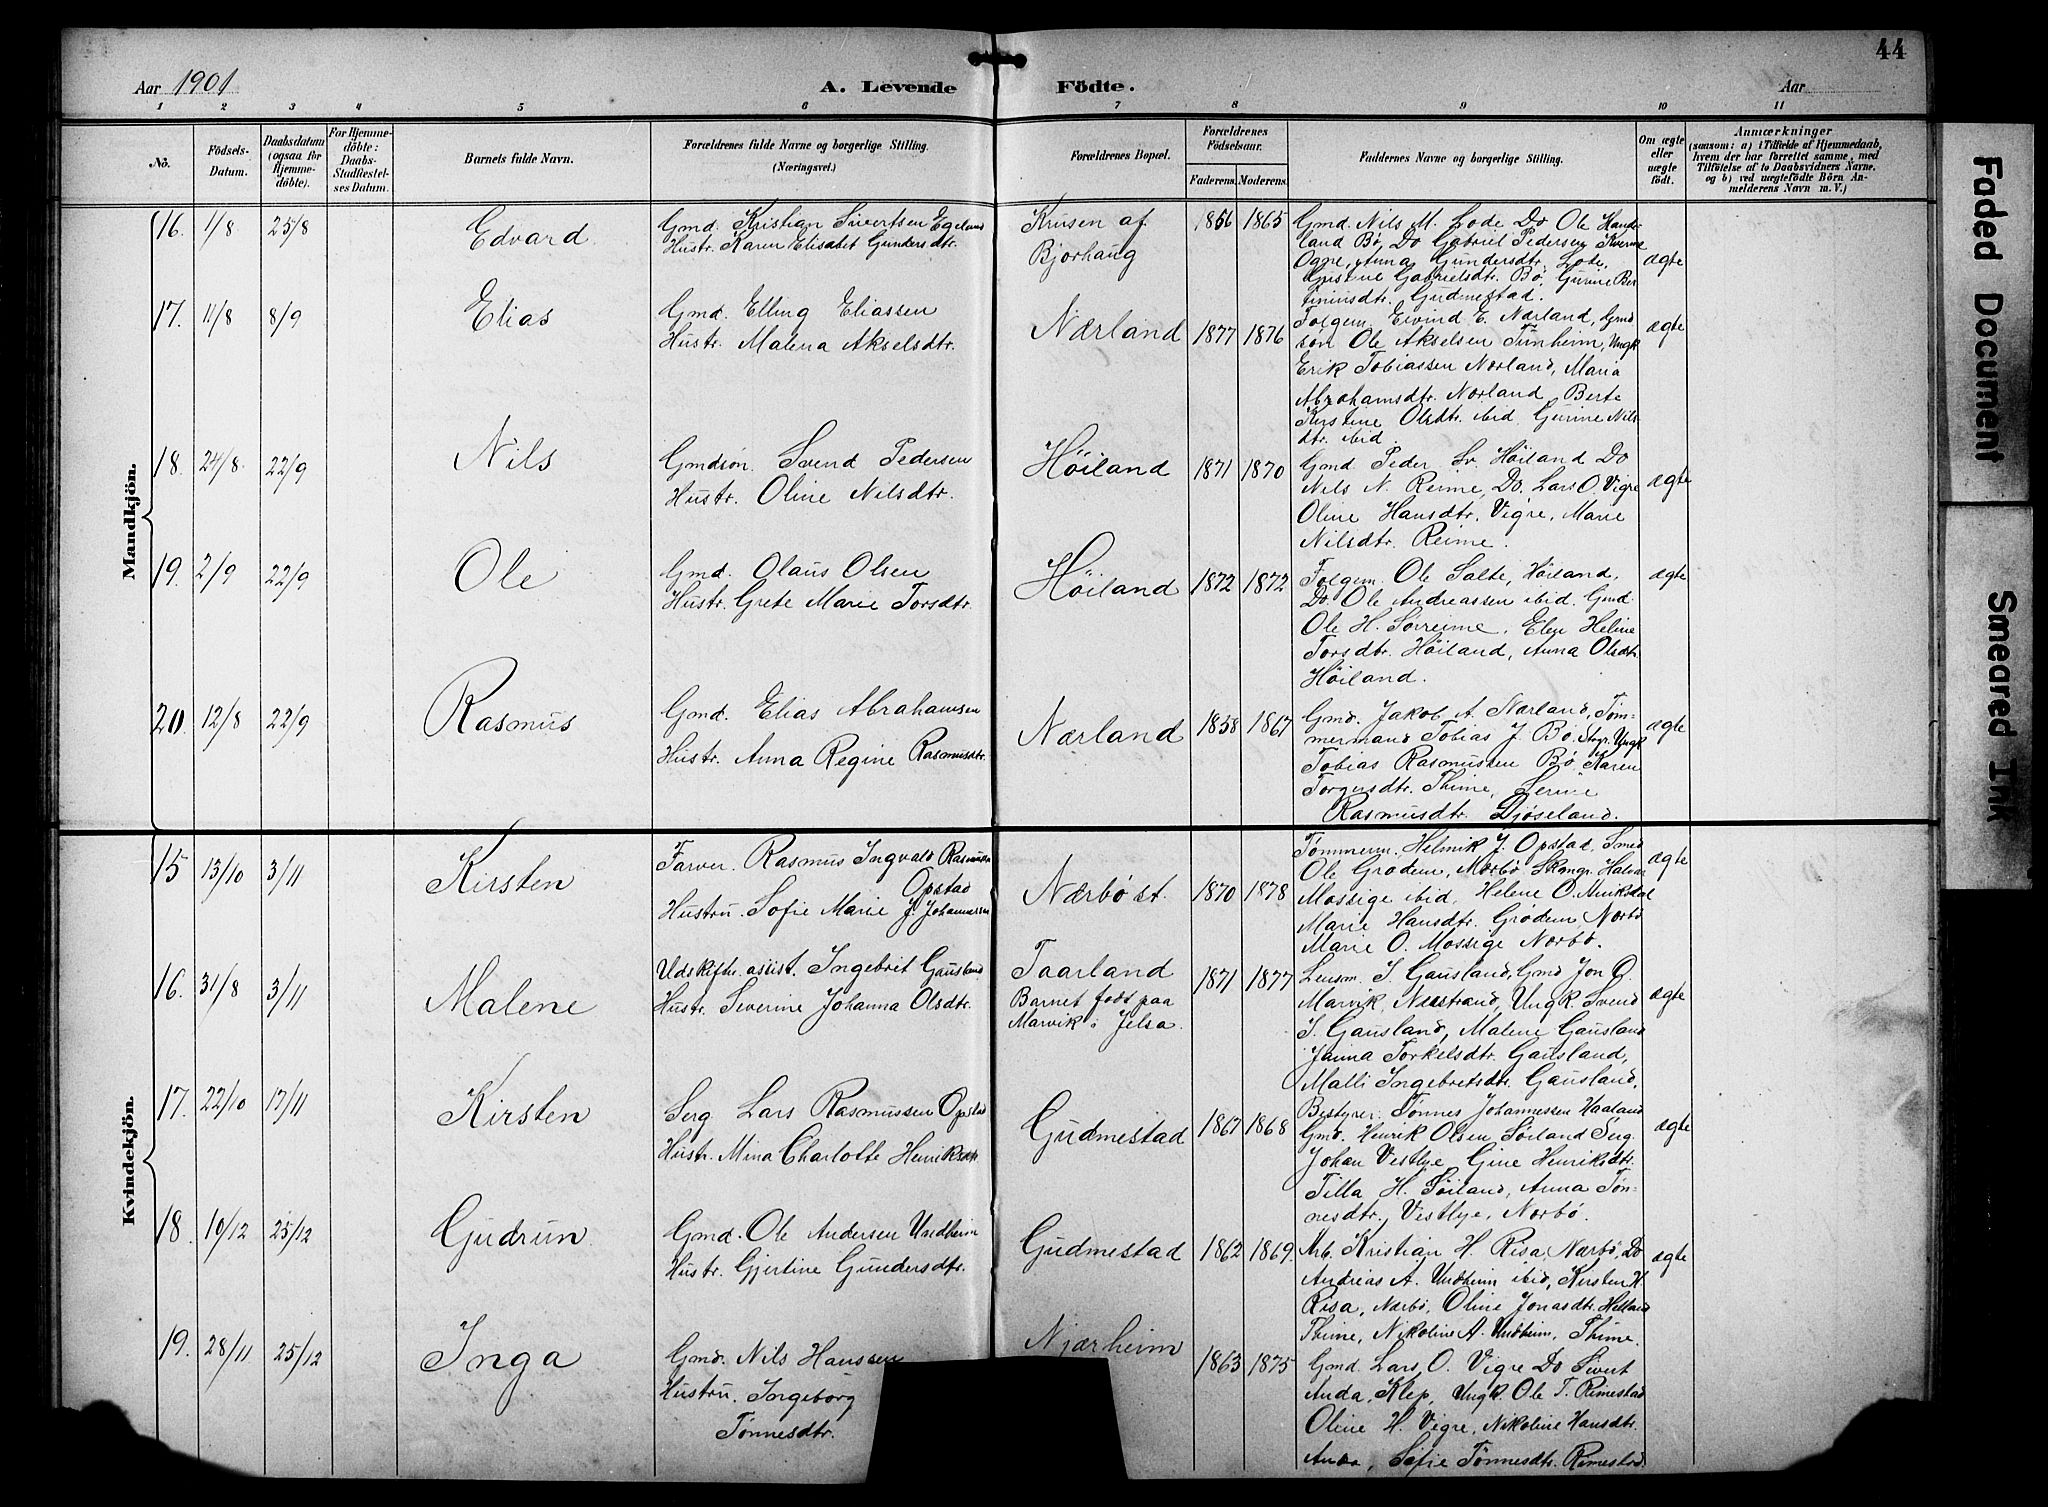 44
Aar 1901
A. Levende Födte.
Aar
1 2 3 4 5 6 7 8 9 10 11
No.
Födsels-
Datum.
Daabsdatum
(ogsaa for
Hjemme-
døbte).
For Hjemme-
döbte:
Daabs-
Stadfæstel-
ses Datum.
Barnets fulde Navn.
Forældrenes fulde Navne og borgerlige Stilling.
(Næringsvei.)
Forældrenes Bopæl.
Forældrenes
Födselsaar.
Faderens. Moderens.
Faddernes Navne og borgerlige Stilling.
Om ægte
eller
uægte
født.
Anmærkninger
(saasom: a) i Tilfælde af Hjemmedaab,
hvem der har forrettet samme, med
Tilföielse af to Daabsvidners Navne.
og b) ved uægtefödte Börn An-
melderens Navn m. V.)
Mandkjön.
16. 1/8 25/8
Edvard
Gmd. Kristian Sivertsen Egeland
Hustr. Karen Elisabet Gundersdtr.
Krusen af
Bjorhaug
1866 1865
Gmd. Nils M. Lode Do Ole Haade-
land Bø, Do Gabriel Pedersen Kverme
Ogne, Anna Gundersdtr. Lode,
Gabrielsdtr. Bø, Gurine Ber
Gudmestad.
ægte
17. 11/8 8/9
Elias
Gmd. Elling Eliassen
Hustr. Malena Akselsdtr.
Nærland
1877 1876
Folgem. Eivind E. Nærland, Gmd
søn Ole Akselsen Tunheim, Ungk
Erik Tobiassen Nærland, Maria
Abrahamsdtr. Nærland Berte
Kirstine Olsdtr. ibid Gurine Nils
dtr. ibid.
ægte
18. 24/8. 22/9
Nils
Gmdsøn. Svend Pedersen
Hustr. Oline Nilsdtr.
Höiland
1871 1870
Gmd Peder Sv. Höiland Do
Nils N. Reime, Do. Lars O. Vigre
Oline Hansdtr. Vigre, Marie
Nilsdtr. Reime.
ægte
19. 2/9 22/9
Ole
Gmd. Olaus Olsen
Hustr. Grete Marie Torsdtr.
Höiland
1872 1872
Folgem. Ole Salte, Høiland,
Do. Ole Andreassen ibid. Gmd.
Ole H. Sørreime, Elen Heline
Torsdtr. Høiland, Anna Olsdtr.
Høiland.
ægte
20. 12/8 22/9
Rasmus
Gmd. Elias Abrahamsen
Hustr. Anna Regine Rasmusdtr.
Nærland
1858 1867
Gmd. Jakob A. Nærland, Tøm-
mermand Tobias J. Bø, Ungk
Tobias Rasmussen Bø, Karen
Torgersdtr. Thime, Serine
Rasmusdtr. Djøseland.
ægte
Kvindekjön.
15 13/10 3/11
Kirsten
Farver. Rasmus Ingvald Rasmussen
Opstad
Hustru. Sofie Marie J. Johannessen
Nærbö st.
1870 1878
Tømmerm. Helmik J. Opstad, Smed
Ole Grødem, Nærbø
Mossige ibid, Helene O.
Marie Hansdtr. Grødem, Nærbø
Marie O. Mossige Nærbø.
ægte
16. 31/8 3/11
Malene
Udskiftn. assist. Ingebret Gausland
Hustr. Severine Johanna Olsdtr.
Taarland
Barnet født paa
Marvik i Jelsa.
1871 1877
Lensm. S. Gausland, Gmd Jon O.
Marvik, Næstrand, Ungk. Svend
S. Gausland, Malene Gausland
Janna Torkelsdtr. Gausland,
Malli Ingebretsdtr. Gausland.
ægte
17. 22/10 17/11
Kirsten
Serg Lars Rasmussen Opstad
Hustr. Mina Charlotte Henriksdtr
Gudmestad
1867 1868
Bestyrer. Tønnes Johannessen Haaland
Gmd. Henrik Olsen Söiland Serg.
Johan Vestlye, Gine Henriksdtr.
Tilla H. Söiland, Anna Tøn-
nesdtr. Vestlye, Nærbø.
ægte
18. 10/12 25/12
Gudrun
Gmd. Ole Andersen Undheim
Hustr. Gjertine Gundersdtr.
Gudmestad
1862 1869.
Arb. Kristian H. Risa Nærbø, Do
Andreas A. Undheim ibid, Kirsten H.
Risa, Nærbø, Oline Jonasdtr. Helland
Thime, Nikoline A. Undheim, Thime.
ægte
19. 28/11 25/12
Inga
Gmd. Nils Hanssen
Hustru. Ingeborg
Tønnesdtr.
Njærheim
1863 1875
Gmd. Lars O. Vigre Do Sivert
Anda, Klep, Ungk. Ole T. Rimestad
Oline H. Vigre, Nikoline Hansdtr.
Anda, Sofie Tønnesdtr. Rimestad.
Faded Document
Smeared Ink